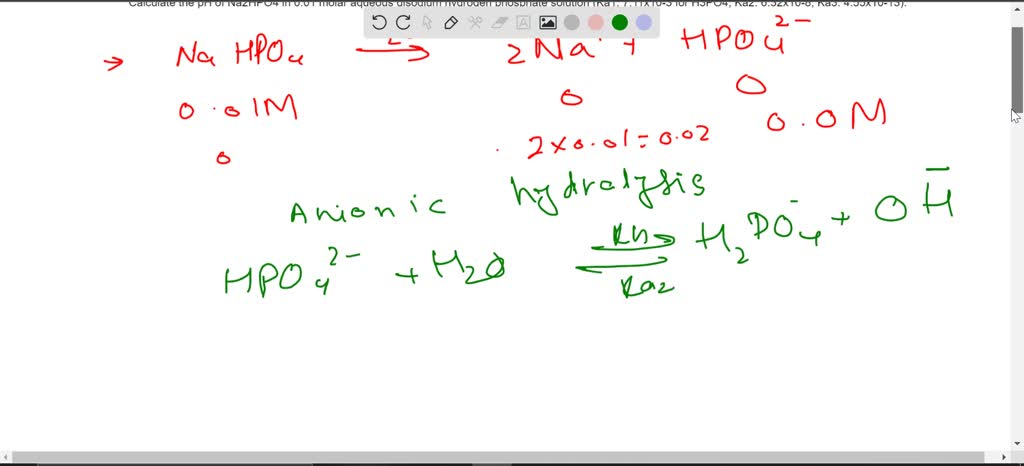 Calculate the pH of Na2HPO4 in 0.01 molar aqueous disodium hydrogen phosphate solution (Ka1; 7.11x10-3 for H3PO4, Ka2: 6.32x10-8, Ka3: 4.55x10-13).
→ Na HPO4 → 2Na + + HPO4 2-
0.01M 0 0
0 2×0.01=0.02 0.0M
Anionic hydralysis
HPO4 2- + H2O Kh Ka2 H2PO4- + OH-